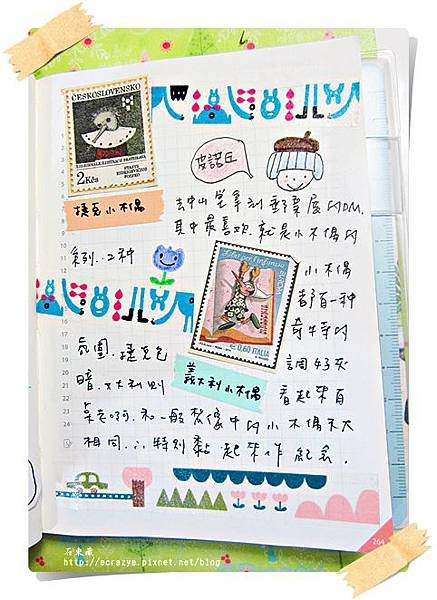 ČESKOSLOVENSKO
2 Kčs
捷克小木偶
皮諾丘
去中山堂拿到郵票展的DM,
其中最喜歡就是小木偶的
系列,2种
小木偶
都有一种
的
氛圍.捷克色
調好灰
€0,60 ITALIA
義大利小木偶
暗.义大利則
看起來有
和一般想像中的小木偶不太
相同.∴特別黏起來作紀念.
264
http://ecrazye.pixnet.net/blog